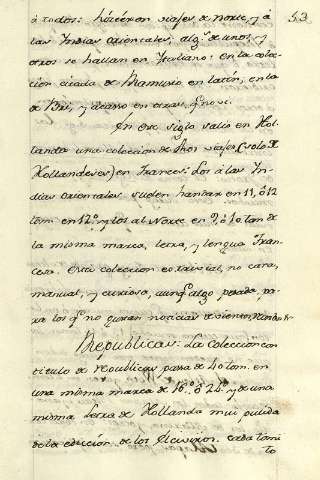 53
à todos: hicieron viajes de norte, y á
las Yndias orientales, algs. de unos, y
otros se hallan en Ytaliano: en la colec-
cion citada de Ramusio en latin, en la
de Bri, y acaso en otras, q. no vi.
En este siglo salió en Hol-
landa una coleccion de tales viajes (solo de
Hollandeses) en Frances: Los á las Yn-
dias orientales suelen handar en 11, ó 12
tom. en 12º. y los al Norte en 9, ó 10 tom. de
la misma marca, letra, y lengua Fran-
cesa. Esta coleccion es trivial, no cara,
manual, y curiosa, aunq. algo pesada, pa-
ra los q. no gustan noticias de vientos, rumbos &c
Republicas: La Coleccion con
titulo de republicas pasa de 40 tom. en
una misma marca de 16º. ó 24º. y de una
misma letra de Hollanda mui pulida
de la ediccion de los Elceviros. cada tomi
to